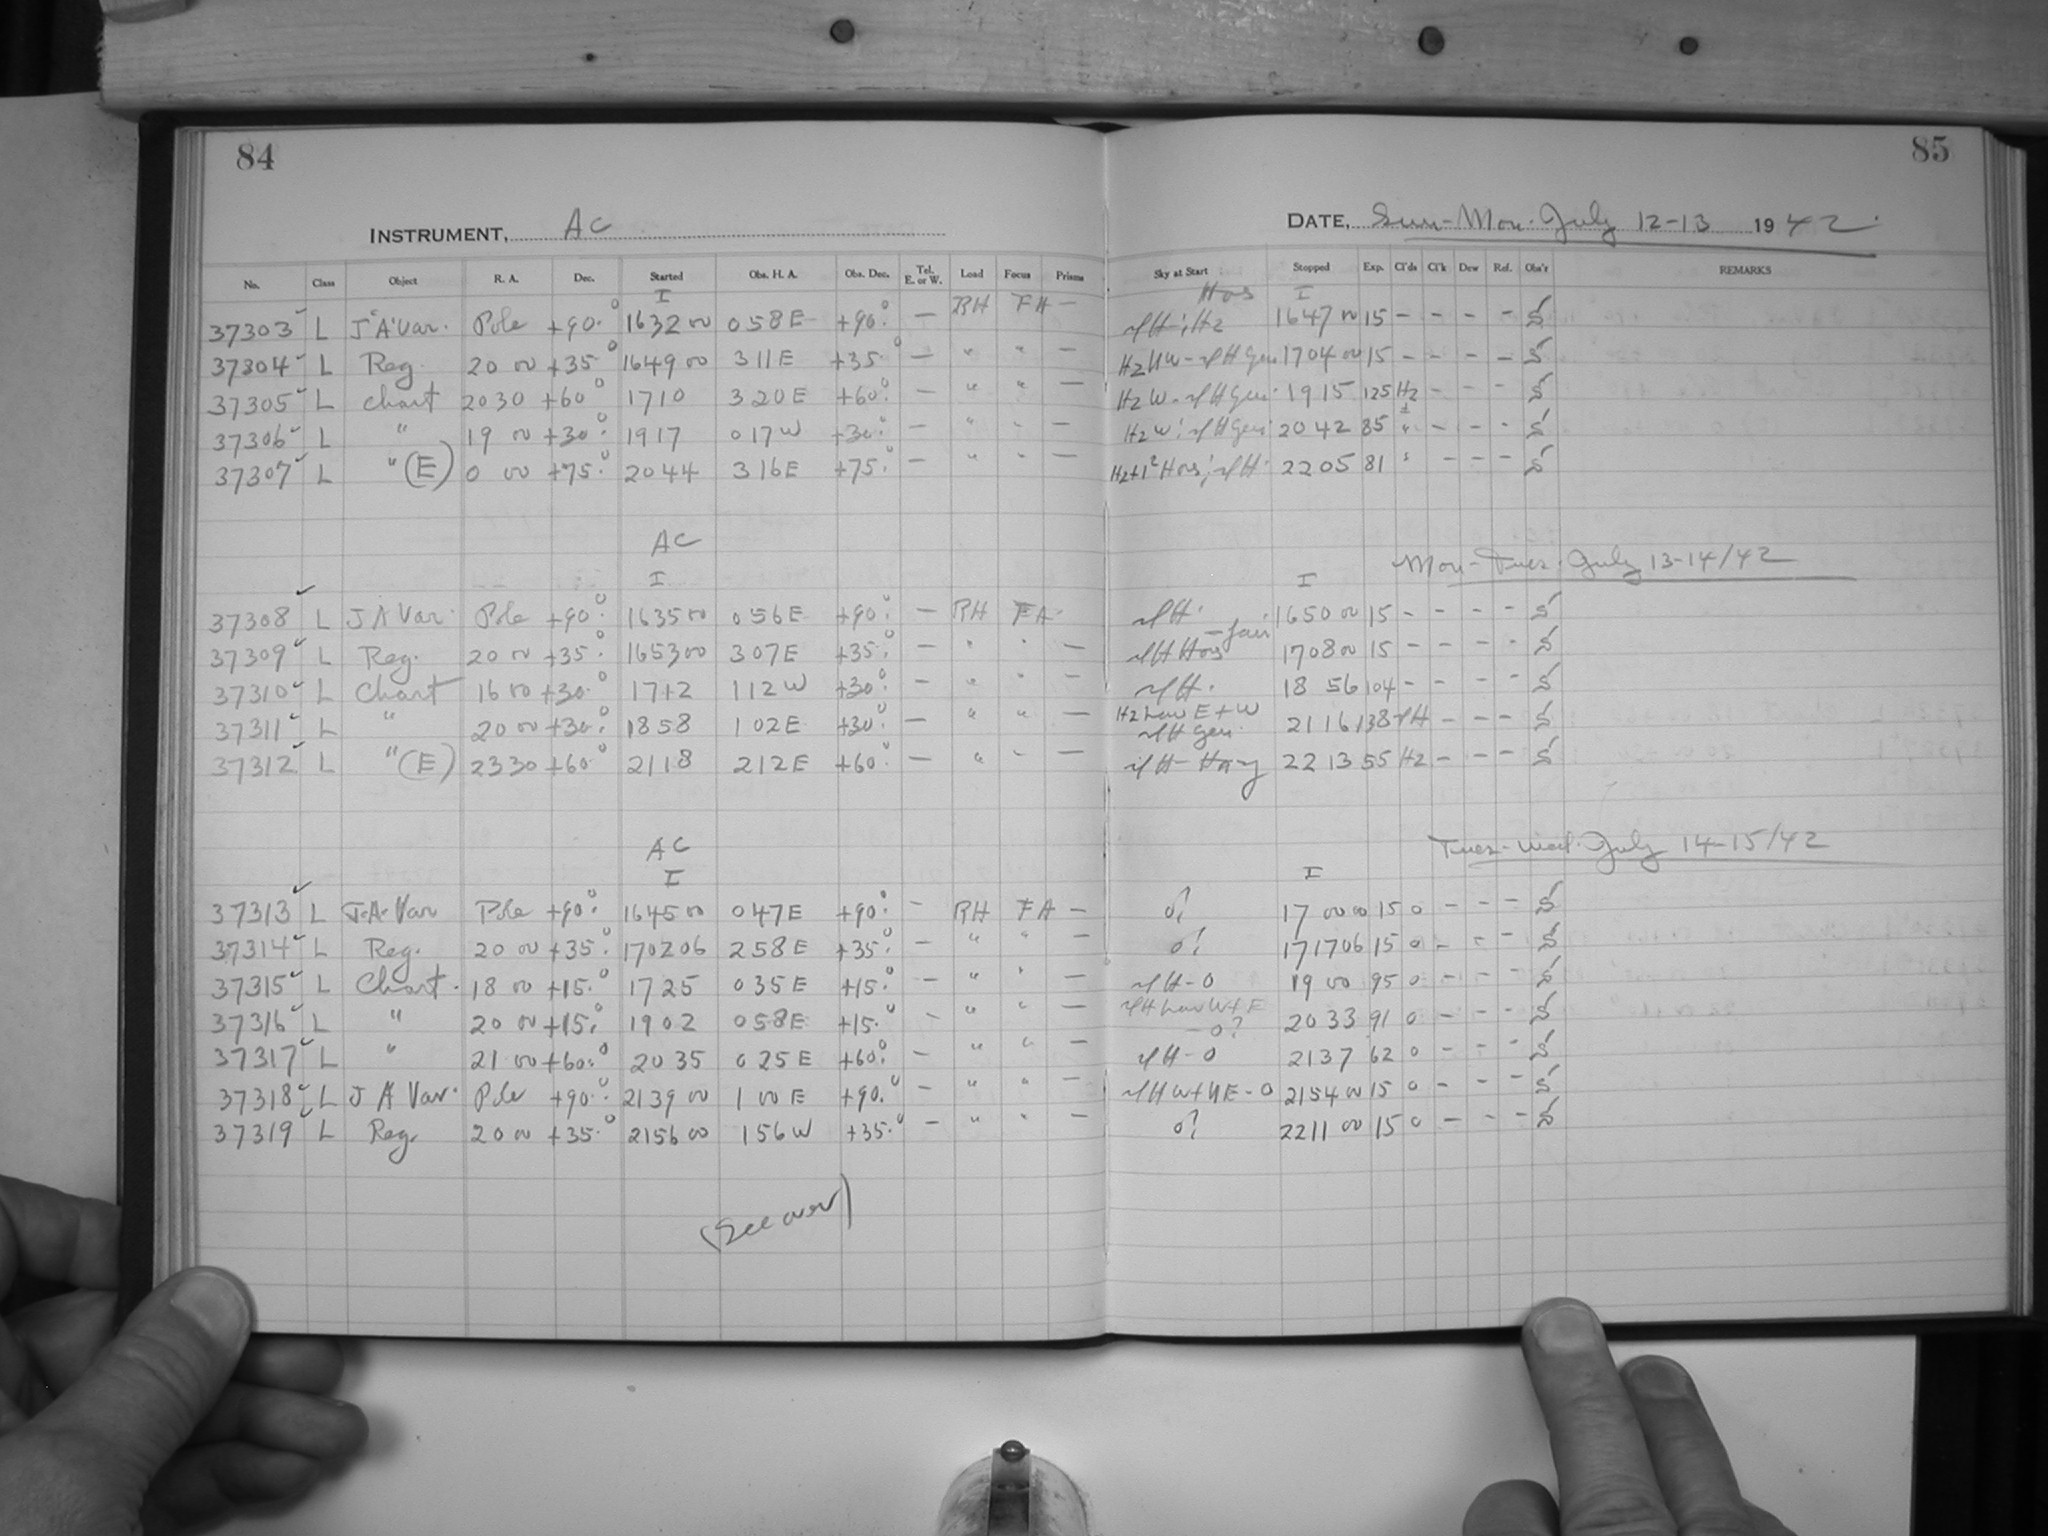 84
85
INSTRUMENT, AC
DATE, Sun-Mon. July 12-13 1942
No. Class Object R. A. Dec. Started Obs. H. A. Obs. Dec. Tel. E. or W. Load Focus Prisms Sky at Start Stopped Exp. Cl'ds Cl'k Dew Ref. Obs'r REMARKS
I I
37303 L J"A"Var. Pole +90.° 1632 00 058E +90.° — RH FA — 1647 00 15 – – – –
37304 L Reg. 20 00 +35° 1649 00 311E +35.° — " " — 1704 00 15 – – – –
37305 L Chart 2030 +60° 1710 320E +60.° — " " — 1915 125 Hz – – –
37306 L " 19 00 +30.° 1917 017W +30.° — " " — 2042 85 " – – –
37307 L "(E) 0 00 +75.° 2044 316E +75.° — " " — 2205 81 – – –
AC
Mon-Tues. July 13-14/42
I I
37308 L J A Var. Pole +90.° 1635 00 056E +90.° — RH FA. 1650 00 15 – – – –
37309 L Reg. 20 00 +35.° 1653 00 307E +35.° — " " — 1708 00 15 – – – –
37310 L Chart 16 00 +30.° 1712 112W +30.° — " " — 18 56 104 – – – –
37311 L " 20 00 +30.° 1858 102E +30.° — " " — Hz Low E + W 2116 138 – – –
37312 L "(E) 2330 +60.° 2118 212E +60.° — " " — 2213 55 Hz – – –
AC
Tues-Wed. July 14-15/42
I I
37313 L J.A. Var Pole +90.° 1645 00 047E +90.° – RH FA — 0? 17 00 00 15 0 – – –
37314 L Reg. 20 00 +35.° 170206 258E +35.° – " " — 0? 171706 15 0 – – –
37315 L Chart. 18 00 +15.° 1725 035E +15.° – " " — 19 00 95 0 – – –
37316 L " 20 00 +15.° 1902 058E +15.° – " " — 2033 91 0 – – –
37317 L " 21 00 +60.° 2035 025E +60.° – " " — 2137 62 0 – – –
37318 L J A Var. Pole +90.° 2139 00 100E +90.° – " " — 2154 00 15 0 – – –
37319 L Reg. 20 00 +35.° 2156 00 156W +35.° – " " — 0? 2211 00 15 0 – – –
(See over)